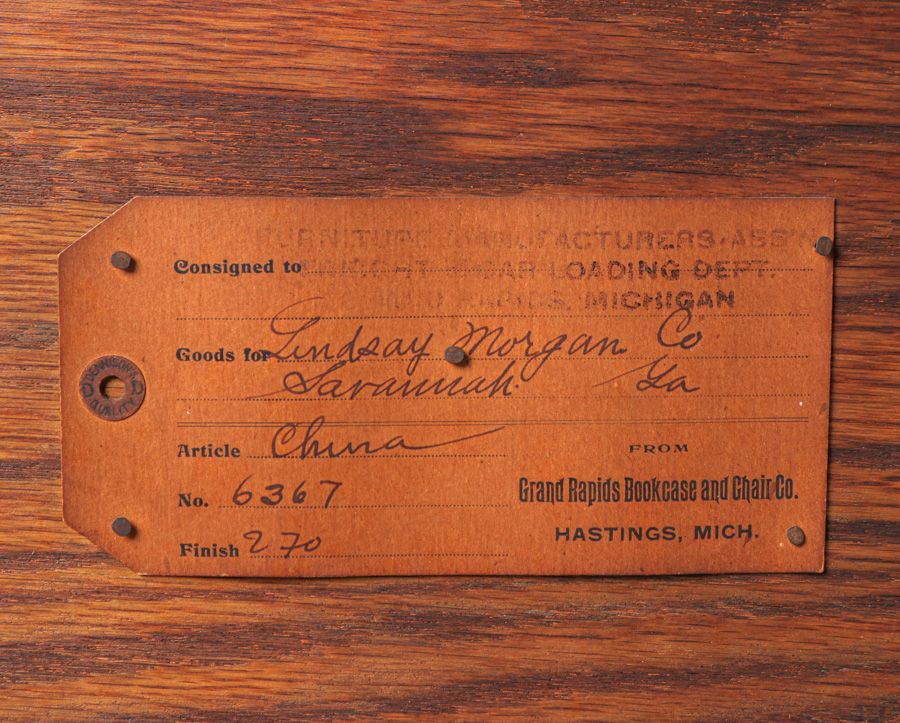 FURNITURE MANUFACTURERS ASS'N
Consigned to FREIGHT & CAR LOADING DEPT.
GRAND RAPIDS, MICHIGAN
Goods for Lindsay Morgan Co
Savannah Ga
Article China
No. 6367
Finish 270
FROM
Grand Rapids Bookcase and Chair Co.
HASTINGS, MICH.
DENNISON'S
QUALITY